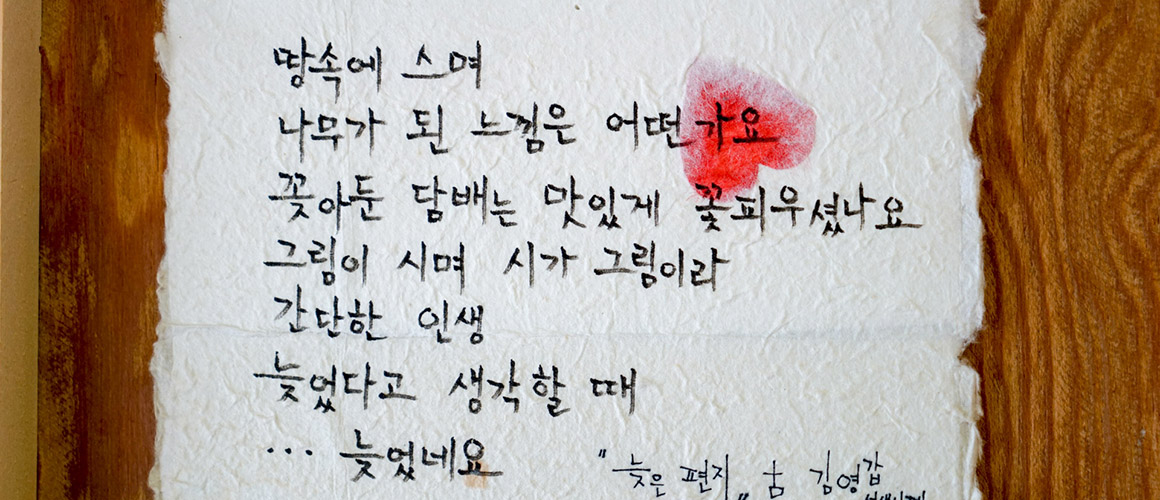 땅속에 스며
나무가 된 느낌은 어떤가요
꽂아둔 담배는 맛있게 꽃피우셨나요
그림이 시며 시가 그림이라
간단한 인생
늦었다고 생각할 때
... 늦었네요
"늦은 편지" 김영갑